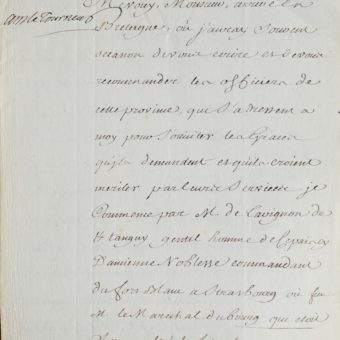 a M le Tourneur
Me voicy, Monsieur, arrivé en
Bretagne, où j'auray souvent
occasion de vous ecrire et de vous
recommander les officiers de
cette province, qui s'adressent a
moy pour solliciter les Graces
qu'ils demandent et qu'ils croient
meriter par leurs services. je
Commence par M. de Lavignon de
tanguy gentil homme de ce païs cy
D'ancienne Noblesse commandant
du fort blanc a Strasbourg où feu
M. le Marechal du bourg qui etoit